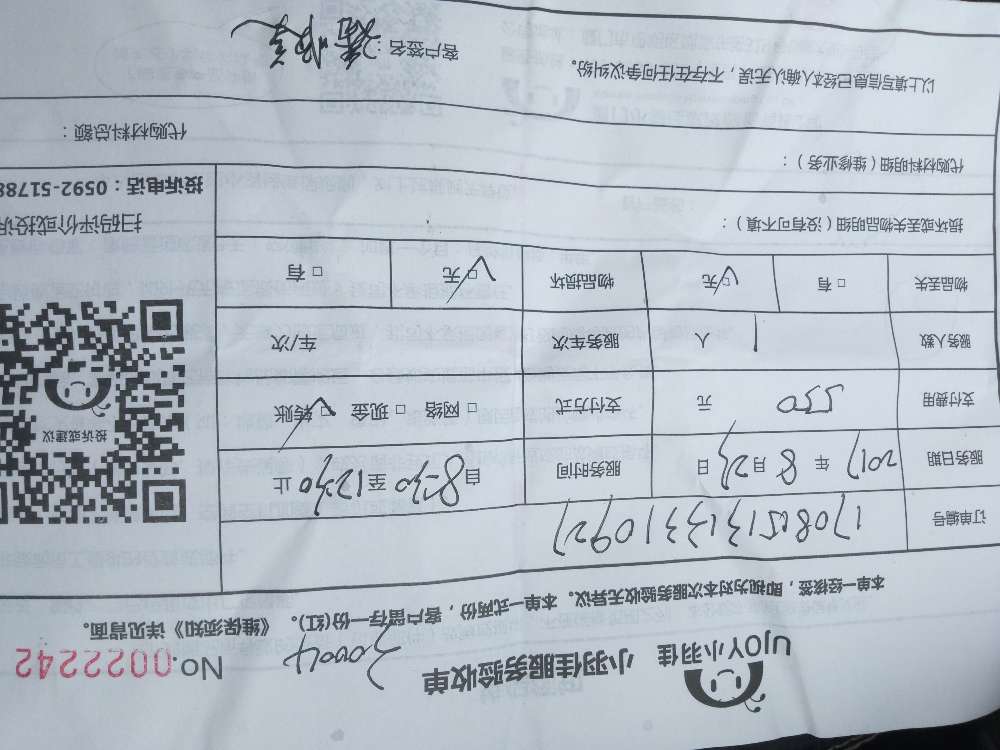 UJOY小羽佳 小羽佳服务验收单 30004 No.0022242
本单一经核签，即视为对本次服务验收无异议。本单一式两份，客户留存一份(红)。《维保须知》详见背面。
订单编号
服务日期 2017 年 8 月 25 日 服务时间 自 8:30 至 12:30 止
支付费用 550 元 支付方式 □ 网络 □ 现金 □ 转账
服务人数 1 人 服务车次 车/次
物品丢失 □ 有 □ 无 物品损坏 □ 无 □ 有
损坏或丢失物品明细（没有可不填）：
代购材料明细（维修业务）：
代购材料总额：
以上填写信息已经本人确认无误，不存在任何争议纠纷。
客户签名：
投诉或建议
扫码评价或投诉
投诉电话：0592-51788